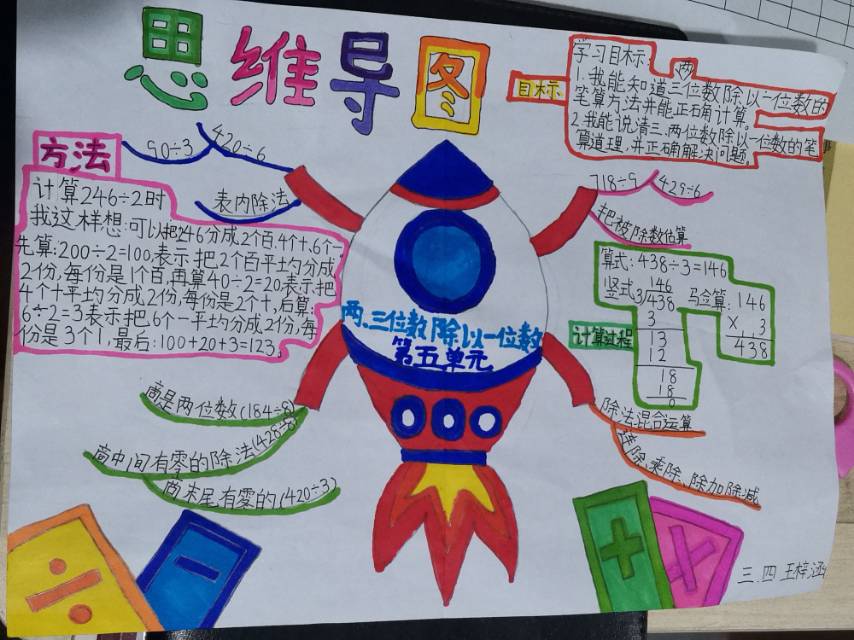 思维导图
目标
学习目标:
两
1.我能知道三位数除以一位数的
笔算方法并能正确计算。
2.我能说清三、两位数除以一位数的笔
算道理,并正确解决问题。
方法
90÷3
420÷6
表内除法
计算246÷2时
我这样想:可以把246分成2个百.4个十,6个一
先算:200÷2=100,表示把2个百平均分成
2份,每份是1个百,再算40÷2=20表示把
4个十平均分成2份,每份是2个十,后算:
6÷2=3表示把6个一平均分成2份,每
份是3个1,最后:100+20+3=123。
718÷9
429÷6
把被除数估算
算式:438÷3=146
竖式
146
3/438
3
13
12
18
18
0
验算:146
× 3
438
计算过程
两、三位数除以一位数
第五单元
商是两位数(184÷8)
商中间有零的除法(428÷8)
商末尾有零的(420÷3)
除法混合运算
连除、乘除、除加除减
÷
-
+
×
三.四 王梓涵